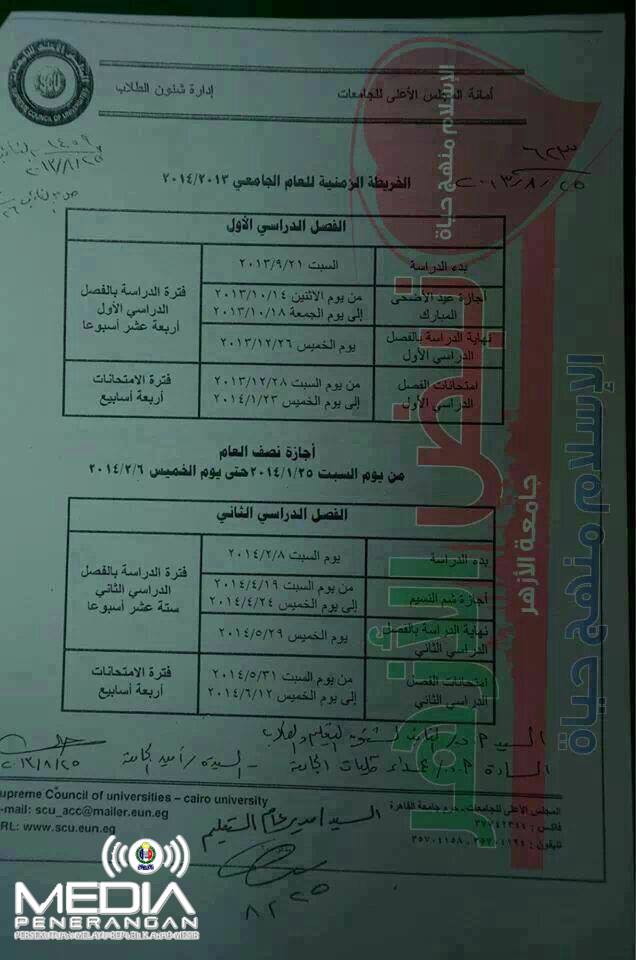 أمانة المجلس الأعلى للجامعات
إدارة شئون الطلاب
SUPREME COUNCIL OF UNIVERSITIES
٢٠١٣/٨/٢٥
الخريطة الزمنية للعام الجامعي ٢٠١٤/٢٠١٣
الفصل الدراسي الأول
بدء الدراسة
السبت ٢٠١٣/٩/٢١
أجازة عيد الأضحى
المبارك
من يوم الاثنين ٢٠١٣/١٠/١٤
إلى يوم الجمعة ٢٠١٣/١٠/١٨
نهاية الدراسة بالفصل
الدراسي الأول
يوم الخميس ٢٠١٣/١٢/٢٦
فترة الدراسة بالفصل
الدراسي الأول
أربعة عشر أسبوعا
امتحانات الفصل
الدراسي الأول
من يوم السبت ٢٠١٣/١٢/٢٨
إلى يوم الخميس ٢٠١٤/١/٢٣
فترة الامتحانات
أربعة أسابيع
أجازة نصف العام
من يوم السبت ٢٠١٤/١/٢٥ حتى يوم الخميس ٢٠١٤/٢/٦
الفصل الدراسي الثاني
بدء الدراسة
يوم السبت ٢٠١٤/٢/٨
أجازة شم النسيم
من يوم السبت ٢٠١٤/٤/١٩
إلى يوم الخميس ٢٠١٤/٤/٢٤
نهاية الدراسة بالفصل
الدراسي الثاني
يوم الخميس ٢٠١٤/٥/٢٩
فترة الدراسة بالفصل
الدراسي الثاني
ستة عشر أسبوعا
امتحانات الفصل
الدراسي الثاني
من يوم السبت ٢٠١٤/٥/٣١
إلى يوم الخميس ٢٠١٤/٦/١٢
فترة الامتحانات
أربعة أسابيع
٢٠١٣/٨/٢٥
المجلس الأعلى للجامعات ، حرم جامعة القاهرة
supreme Council of universities – cairo university
-mail: scu_acc@mailer.eun.eg
RL: www.scu.eun.eg
السيد / مدير عام التعليم
٨/٢٥
نبض الأزهر
جامعة الأزهر
الإسلام منهج حياة
الإسلام منهج حياة
MEDIA
PENERANGAN